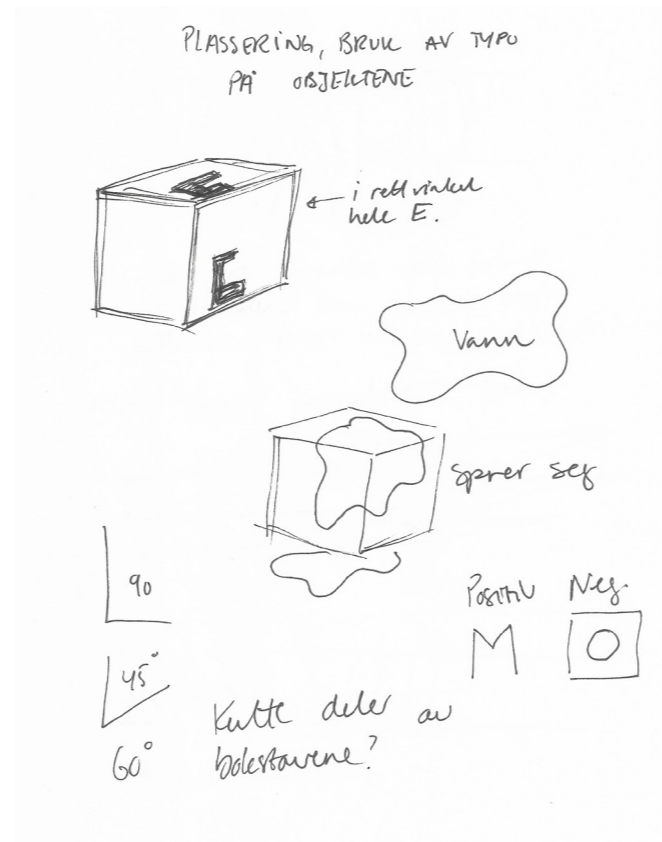 PLASSERING, BRUK AV TYPO
PÅ OBJEKTENE
E
E
i rett vinkel
hele E.
Vann
sprer seg
90
Positiv Neg.
M O
45°
60°
Kutte deler av
bokstavene?